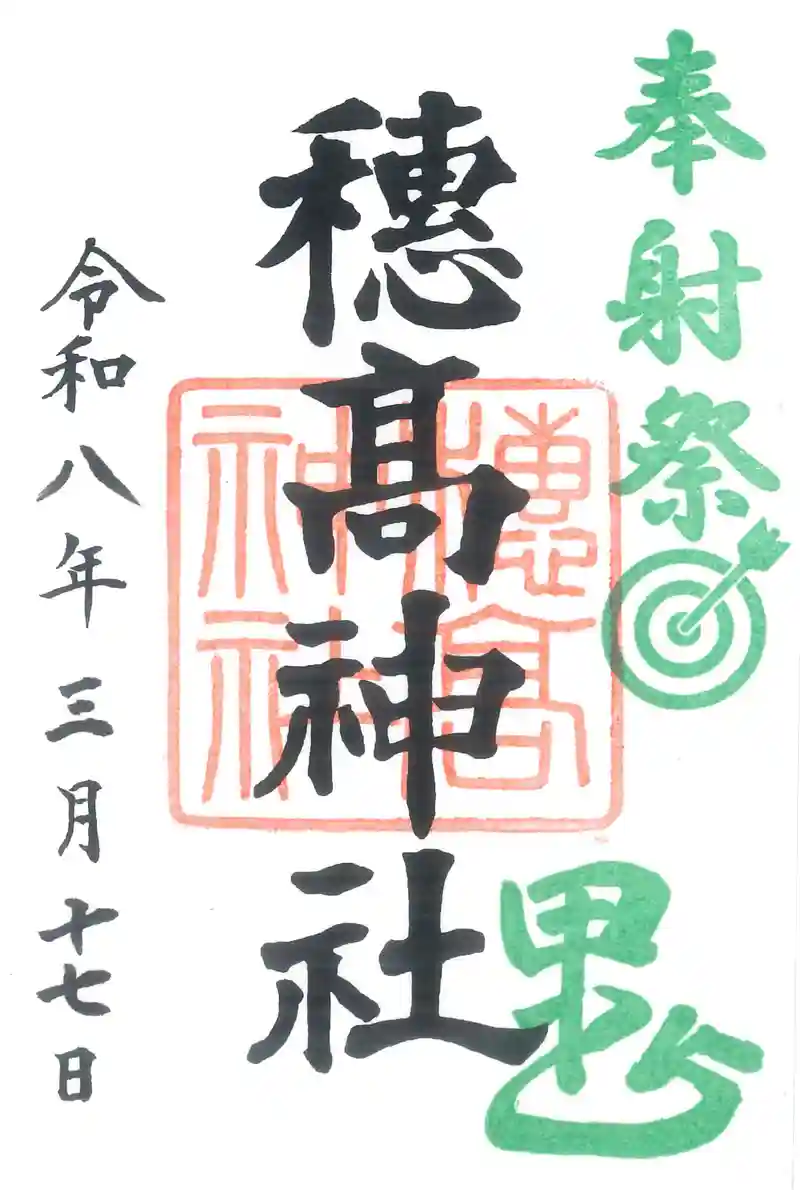 奉射祭
穂髙神社
穗高神社
令和八年三月十七日